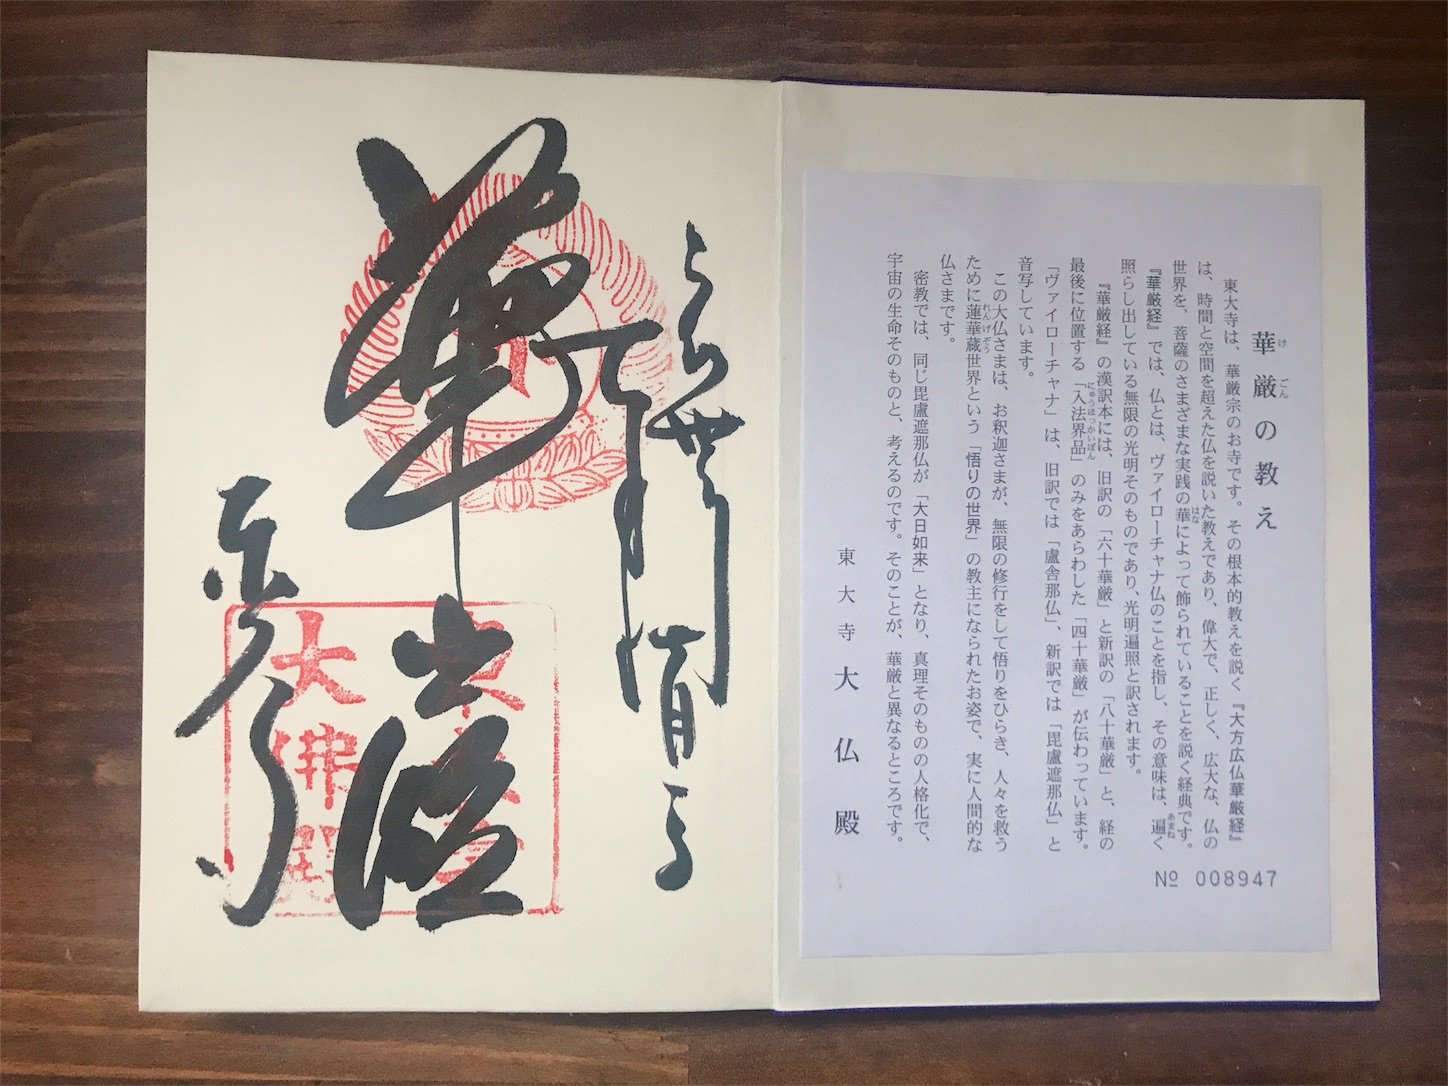 華厳の教え
けごん
東大寺は、華厳宗のお寺です。その根本的教えを説く『大方広仏華厳経』
は、時間と空間を超えた仏を説いた教えであり、偉大で、正しく、広大な、仏の
世界を、菩薩のさまざまな実践の華によって飾られていることを説く経典です。
はな
『華厳経』では、仏とは、ヴァイローチャナ仏のことを指し、その意味は、遍く
あまね
照らし出している無限の光明そのものであり、光明遍照と訳されます。
『華厳経』の漢訳本には、旧訳の「六十華厳」と新訳の「八十華厳」と、経の
最後に位置する「入法界品」のみをあらわした「四十華厳」が伝わっています。
にゅうほっかいぼん
「ヴァイローチャナ」は、旧訳では「盧舎那仏」、新訳では「毘盧遮那仏」と
音写しています。
この大仏さまは、お釈迦さまが、無限の修行をして悟りをひらき、人々を救う
ために蓮華蔵世界という「悟りの世界」の教主になられたお姿で、実に人間的な
れんげぞう
仏さまです。
密教では、同じ毘盧遮那仏が「大日如来」となり、真理そのものの人格化で、
宇宙の生命そのものと、考えるのです。そのことが、華厳と異なるところです。
東大寺 大仏殿
№ 008947
華厳
東大寺
大佛殿